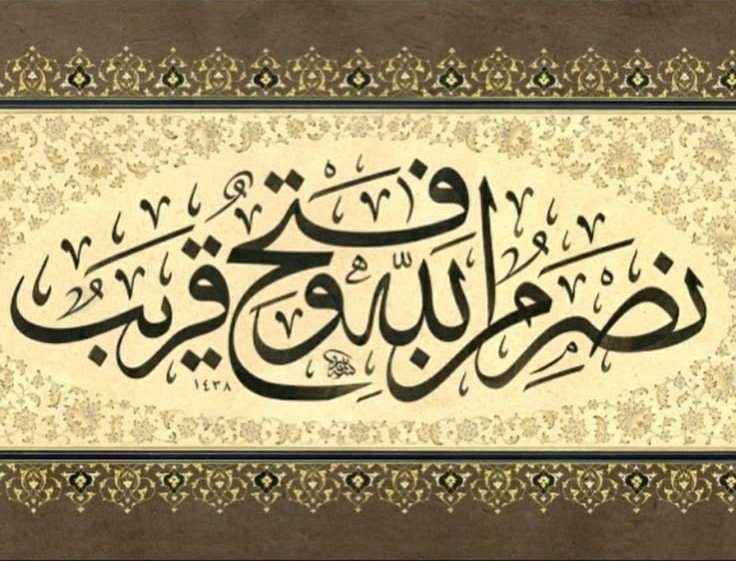 نَصْرٌ مِّنَ اللَّهِ وَفَتْحٌ قَرِيبٌ
١٤٣٨